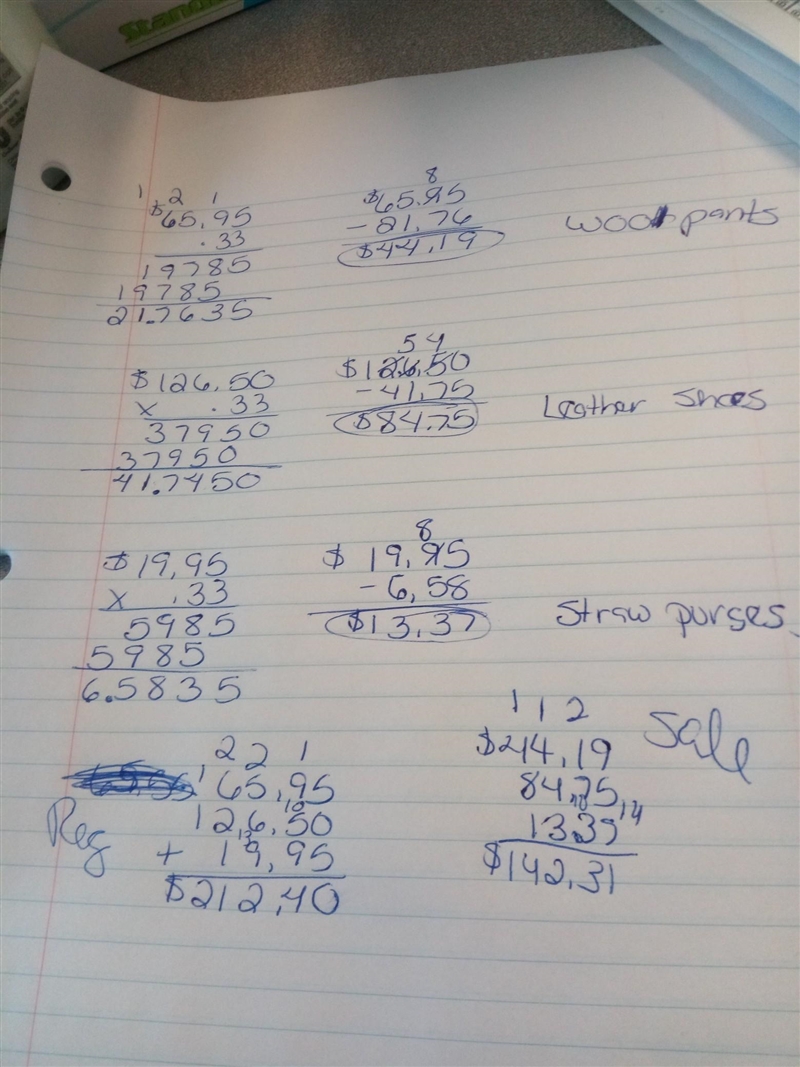 Stand
1 2 1
$65.95
.33
19785
19785
21.7635
8
$65.95
-21.76
$44.19
wool pants
$126.50
x .33
37950
37950
41.7450
54
$126.50
-41.75
$84.75
Leather shoes
$19.95
x .33
5985
5985
6.5835
8
$19.95
-6.58
$13.37
Straw purses
Reg
2 2 1
65.95
126.50
+ 19.95
$212.40
1 1 2
$44.19
84.75
$142.31
Sale